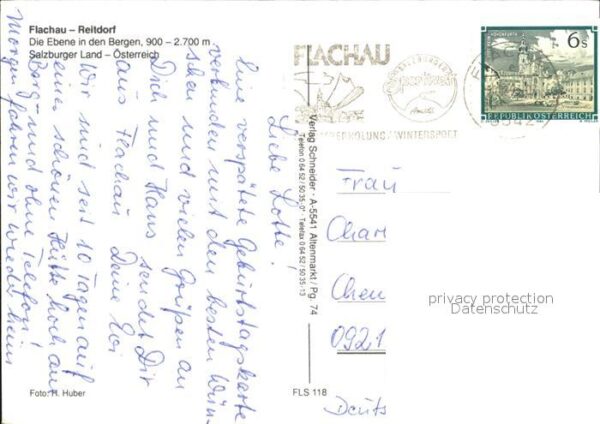 Flachau – Reitdorf
Die Ebene in den Bergen, 900 – 2.700 m
Salzburger Land – Österreich
Liebe Lotte!
Eine verspätete Geburtstagskarte
verbunden mit den besten Wün-
schen und vielen Grüßen an
Dich und Hans sendet Dir
aus Flachau Deine Evi
Wir sind seit 10 Tagen auf
einer schönen Hütte hoch am
Berg und ohne Telefon!
Morgen fahren wir wieder heim
Foto: H. Huber
FLS 118
Verlag Schneider · A-5541 Altenmarkt / Pg. 74
Telefon 0 64 52 / 50 35-0* · Telefax 0 64 52 / 50 35-13
FLACHAU
SALZBURGER
Sportwelt
Amadé
ERHOLUNG / WINTERSPORT
6 S
REPUBLIK ÖSTERREICH
5542
Frau
Char
Chem
0921
Deuts
privacy protection
Datenschutz